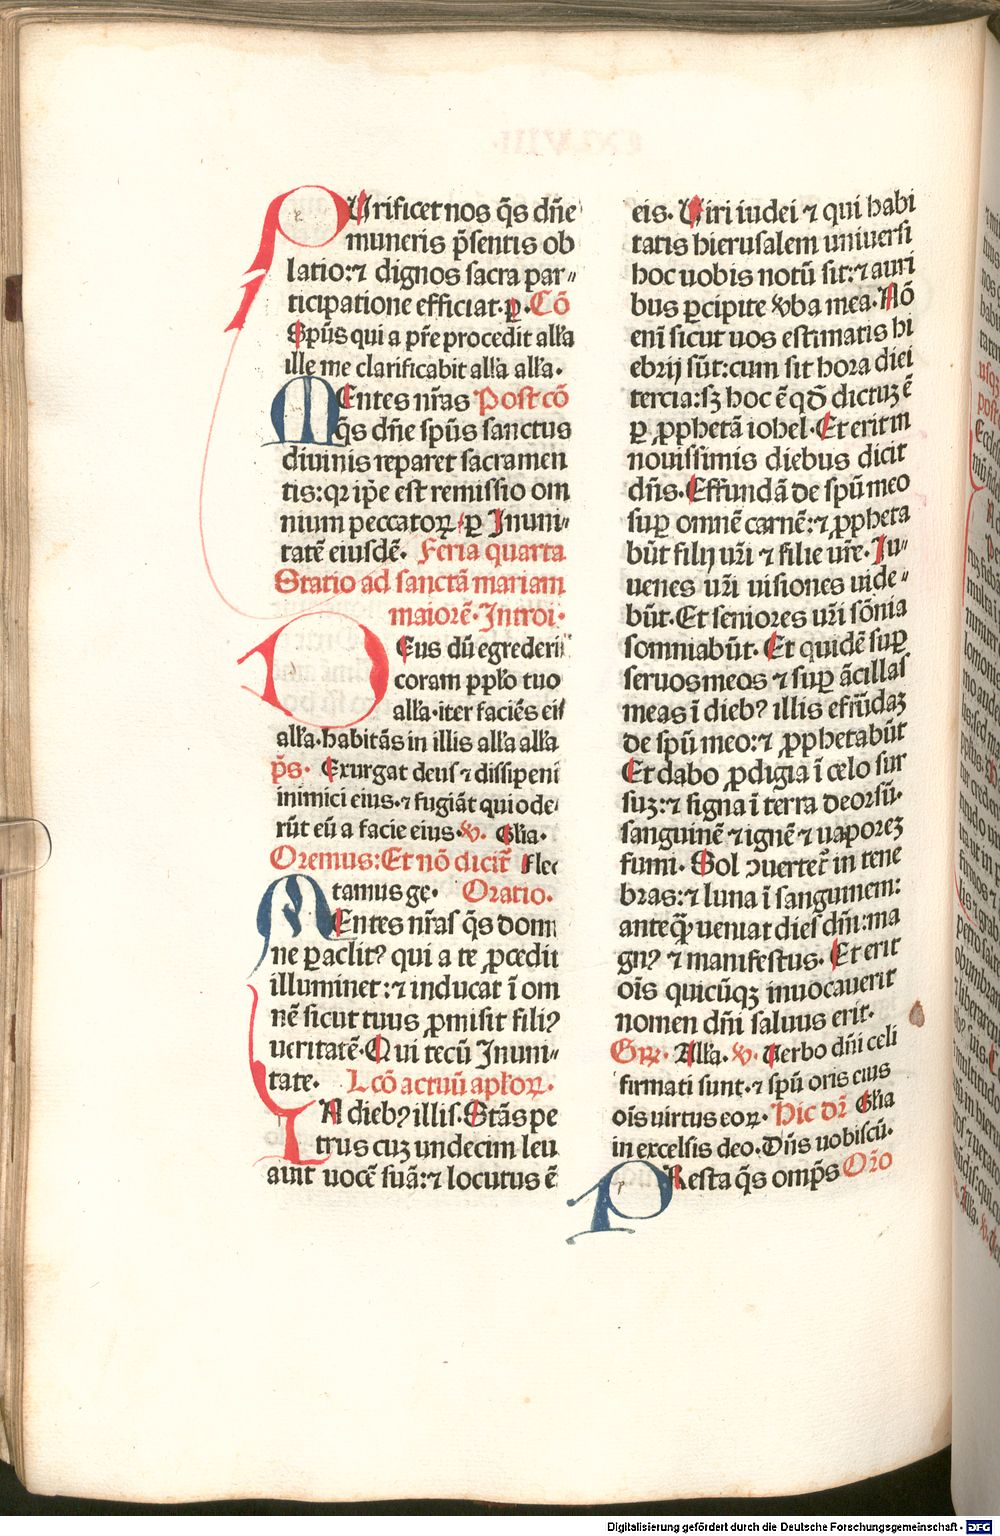 PUrificet nos q̄s dn̄e
muneris p̄sentis ob
latio:⁊ dignos sacra par⸗
ticipatione efficiat·ꝑ·Cō
Spūs qui a pr̄e procedit all'a
ille me clarificabit all'a all'a·
MEntes nr̄as Post cō
q̄s dn̄e spūs sanctus
diuinis reparet sacramen
tis:qr ip̄e est remissio om
nium peccatoꝝ·ꝑ Inuni⸗
tatē eiusdē· Feria quarta
Statio ad sanctā mariam
maiorē·Introi·
DEus dū egrederis
coram pp̄lo tuo
all'a·iter faciēs eis
all'a·habitās in illis all'a all'a
p̄s· Exurgat deus ⁊ dissipent
inimici eius·⁊ fugiāt qui ode
rūt eū a facie eius·v̄. Gl'ia·
Oremus:Et nō dicit̄ Flec
tamus ge· Oratio.
MEntes nr̄as q̄s domi
ne ꝑaclitꝰ qui a te ꝓcedit
illuminet:⁊ inducat ī om
nē sicut tuus ꝓmisit filiꝰ
ueritatē·Qui tecū Inuni⸗
tate· Lcō actuū apl'oꝝ·
IN diebꝰ illis·Stās pe
trus cuz undecim leu
auit uocē suā:⁊ locutus ē
eis· Uiri iudei ⁊ qui habi
tatis hierusalem uniuersi
hoc uobis notū sit:⁊ auri
bus ꝑcipite v̄ba mea·Nō
enī sicut uos estimatis hi
ebrij sūt:cum sit hora diei
tercia:sꝫ hoc ē qđ dictuz ē
ꝑ ꝓphetā iohel·Et erit in
nouissimis diebus dicit
dn̄s·Effundā de spū meo
suꝑ omnē carnē:⁊ ꝓpheta
būt filij ur̄i ⁊ filie ur̄e·Iu⸗
uenes ur̄i uisiones uide⸗
būt·Et seniores ur̄i sōnia
somniabūt· Et quidē suꝑ
seruos meos ⁊ suꝑ ācillas
meas ī diebꝰ illis effūdaz
de spū meo:⁊ ꝓphetabūt
Et dabo ꝓdigia ī celo sur
suz:⁊ signa ī terra deorsū·
sanguinē ⁊ ignē ⁊ uaporez
fumi· Sol ↄuertet̄ in tene
bras:⁊ luna ī sanguinem:
ante qꝫ ueniat dies dn̄i:ma
gnꝰ ⁊ manifestus· Et erit
oīs quicūqꝫ inuocauerit
nomen dn̄i saluus erit·
Grꝝ· All'a· v̄· Uerbo dn̄i celi
firmati sunt·⁊ spū oris eius
oīs uirtus eoꝝ·Hic dr̄ Gl'ia
in excelsis deo·Dn̄s uobiscū·
PResta q̄s omp̄s Or̄o
Digitalisierung gefördert durch die Deutsche Forschungsgemeinschaft - DFG